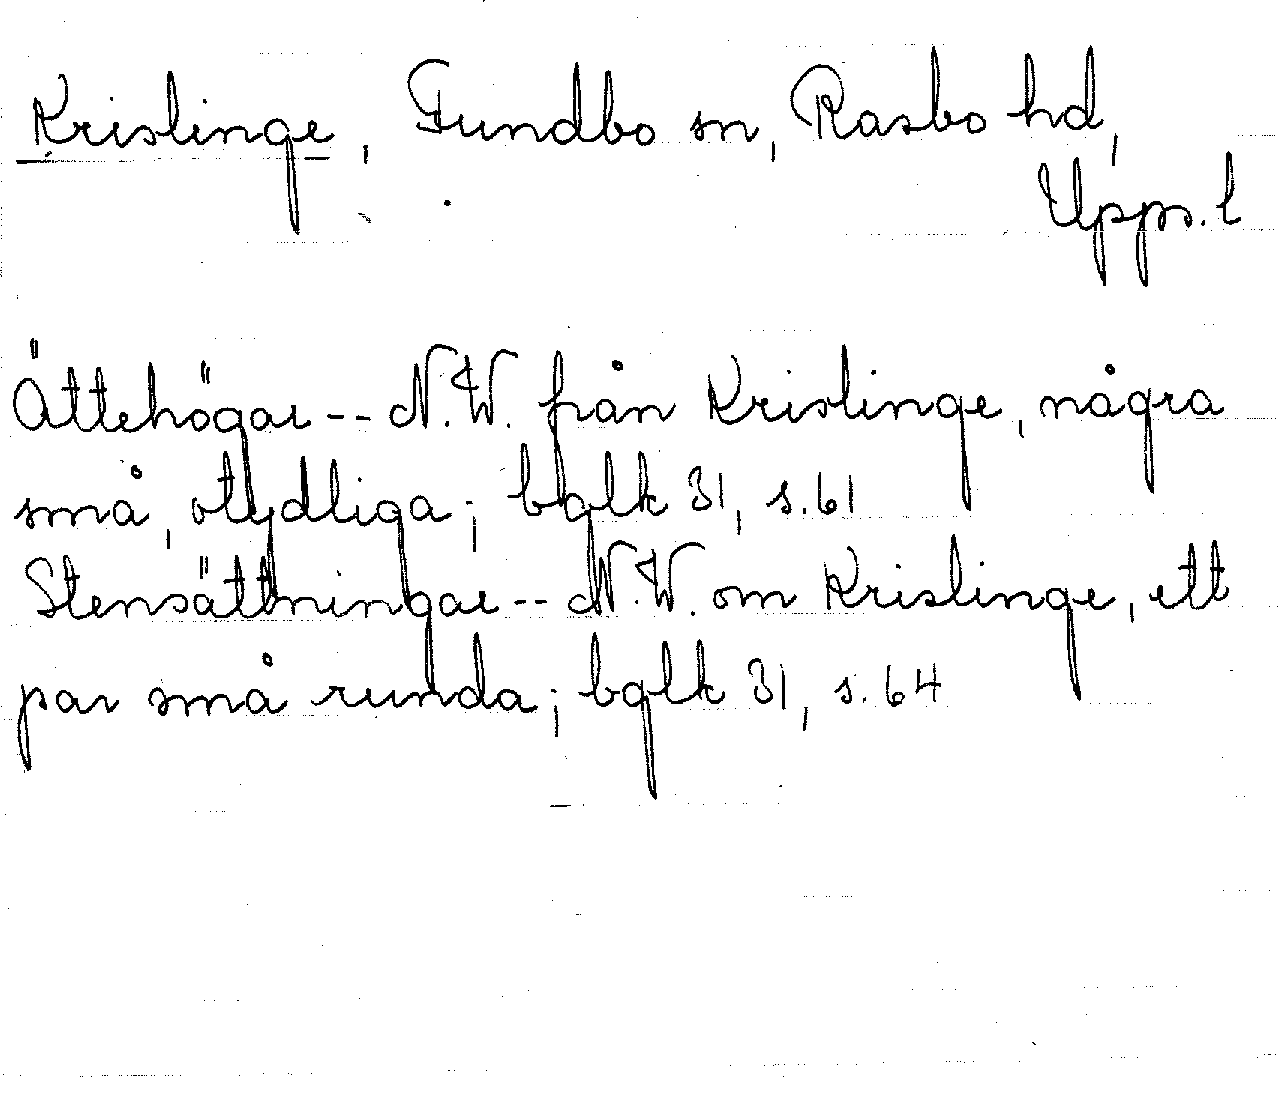 Krislinge, Fundbo sn, Rasbo hd,
Upps. l
Ättehögar -- N.W. från Krislinge, några
små, otydliga; bglk 31, s. 61
Stensättningar -- N.W. om Krislinge, ett
par små runda; bglk 31, s. 64